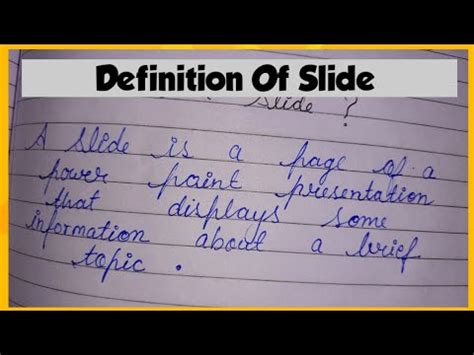 Definition Of Slide
Slide ?
A slide is a page of a
power paint presentation
that displays some
information about a brief
topic .